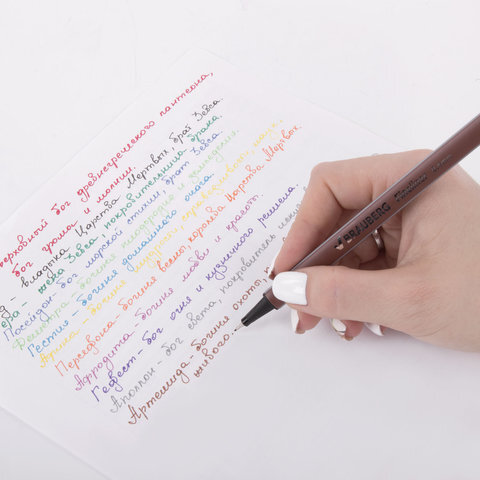 верховный бог древнегреческого пантеона,
бог грома и молнии.
владыка Царства Мёртвых, брат Зевса
жена Зевса, покровительница брака.
Посейдон - бог морской стихии, брат Зевса.
Деметра - богиня плодородия и земледелия.
Гестия - богиня домашнего очага.
Афина - богиня мудрости, справедливости, наук,
Персефона - богиня весны, королева Царства Мёртвых.
Афродита - богиня любви и красоты.
Гефест - бог огня и кузнечного ремесла.
Аполлон - бог света, покровитель
Артемида - богиня охоты,
живого.
BRAUBERG